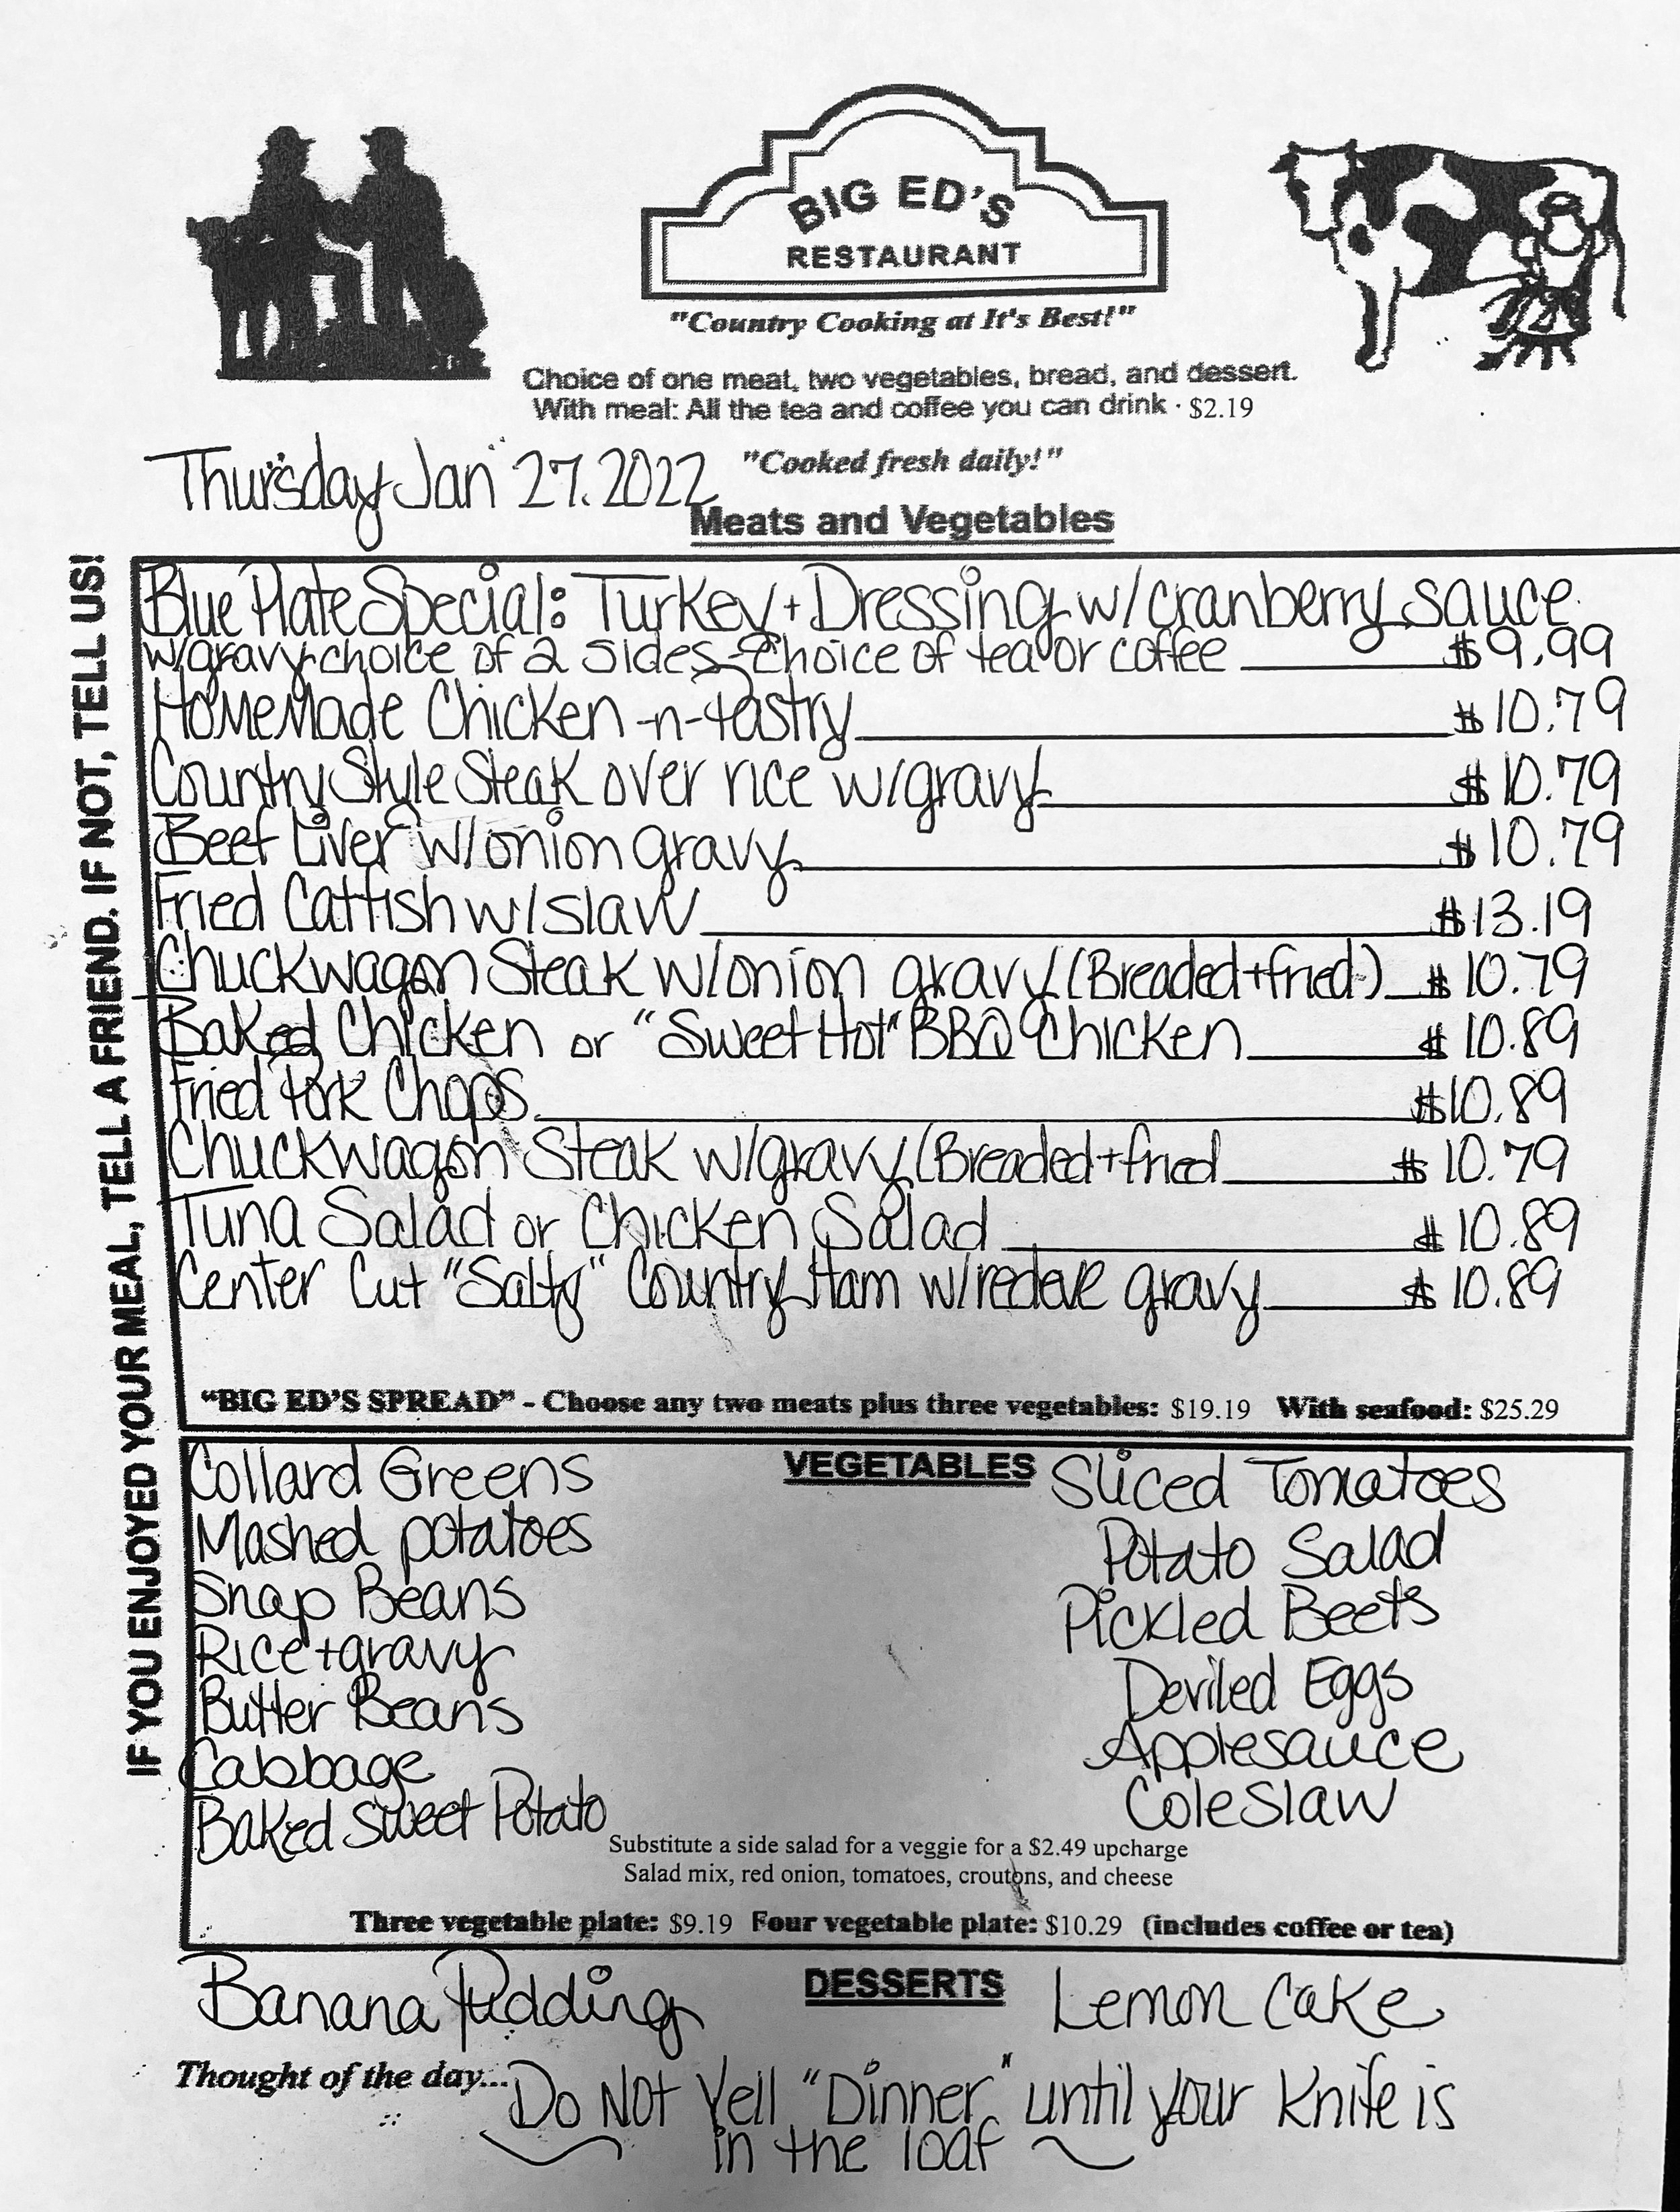 BIG ED'S
RESTAURANT
"Country Cooking at It's Best!"
Choice of one meat, two vegetables, bread, and dessert.
With meal: All the tea and coffee you can drink · $2.19
Thursday Jan 27. 2022
"Cooked fresh daily!"
Meats and Vegetables
IF YOU ENJOYED YOUR MEAL, TELL A FRIEND. IF NOT, TELL US!
Blue Plate Special: Turkey + Dressing w/cranberry sauce
w/gravy choice of 2 sides-choice of tea or coffee $9.99
HomeMade Chicken -n- Pastry $10.79
Country Style Steak over rice w/gravy $10.79
Beef Liver w/onion gravy $10.79
Fried Catfish w/slaw $13.19
Chuckwagon Steak w/onion gravy (Breaded+fried) $10.79
Baked Chicken or "Sweet Hot" BBQ Chicken $10.89
Fried Pork Chops $10.89
Chuckwagon Steak w/gravy (Breaded+fried $10.79
Tuna Salad or Chicken Salad $10.89
Center Cut "Salty" Country Ham w/redeye gravy $10.89
"BIG ED'S SPREAD" - Choose any two meats plus three vegetables: $19.19 With seafood: $25.29
VEGETABLES
Collard Greens
Mashed potatoes
Snap Beans
Rice+gravy
Butter Beans
Cabbage
Baked Sweet Potato
Sliced Tomatoes
Potato Salad
Pickled Beets
Deviled Eggs
Applesauce
ColeSlaw
Substitute a side salad for a veggie for a $2.49 upcharge
Salad mix, red onion, tomatoes, croutons, and cheese
Three vegetable plate: $9.19 Four vegetable plate: $10.29 (includes coffee or tea)
DESSERTS
Banana Pudding
Lemon Cake
Thought of the day... Do Not Yell "Dinner" until your Knife is
in the loaf